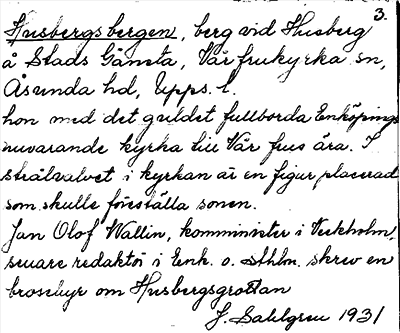 3.
Husbergsbergen, berg vid Husberg
å Stads Gånsta, Vårfrukyrka sn,
Åsunda hd, Upps. l.
hon med det guldet fullborda Enköpings
nuvarande kyrka till Vår frus ära. I
strålvalvet i kyrkan är en figur placerad
som skulle föreställa sonen.
Jan Olof Wallin, komminister i Veckholm,
senare redaktör i Enk. o. Sthlm. skrev en
broschyr om Husbergsgrottan
J. Sahlgren 1931